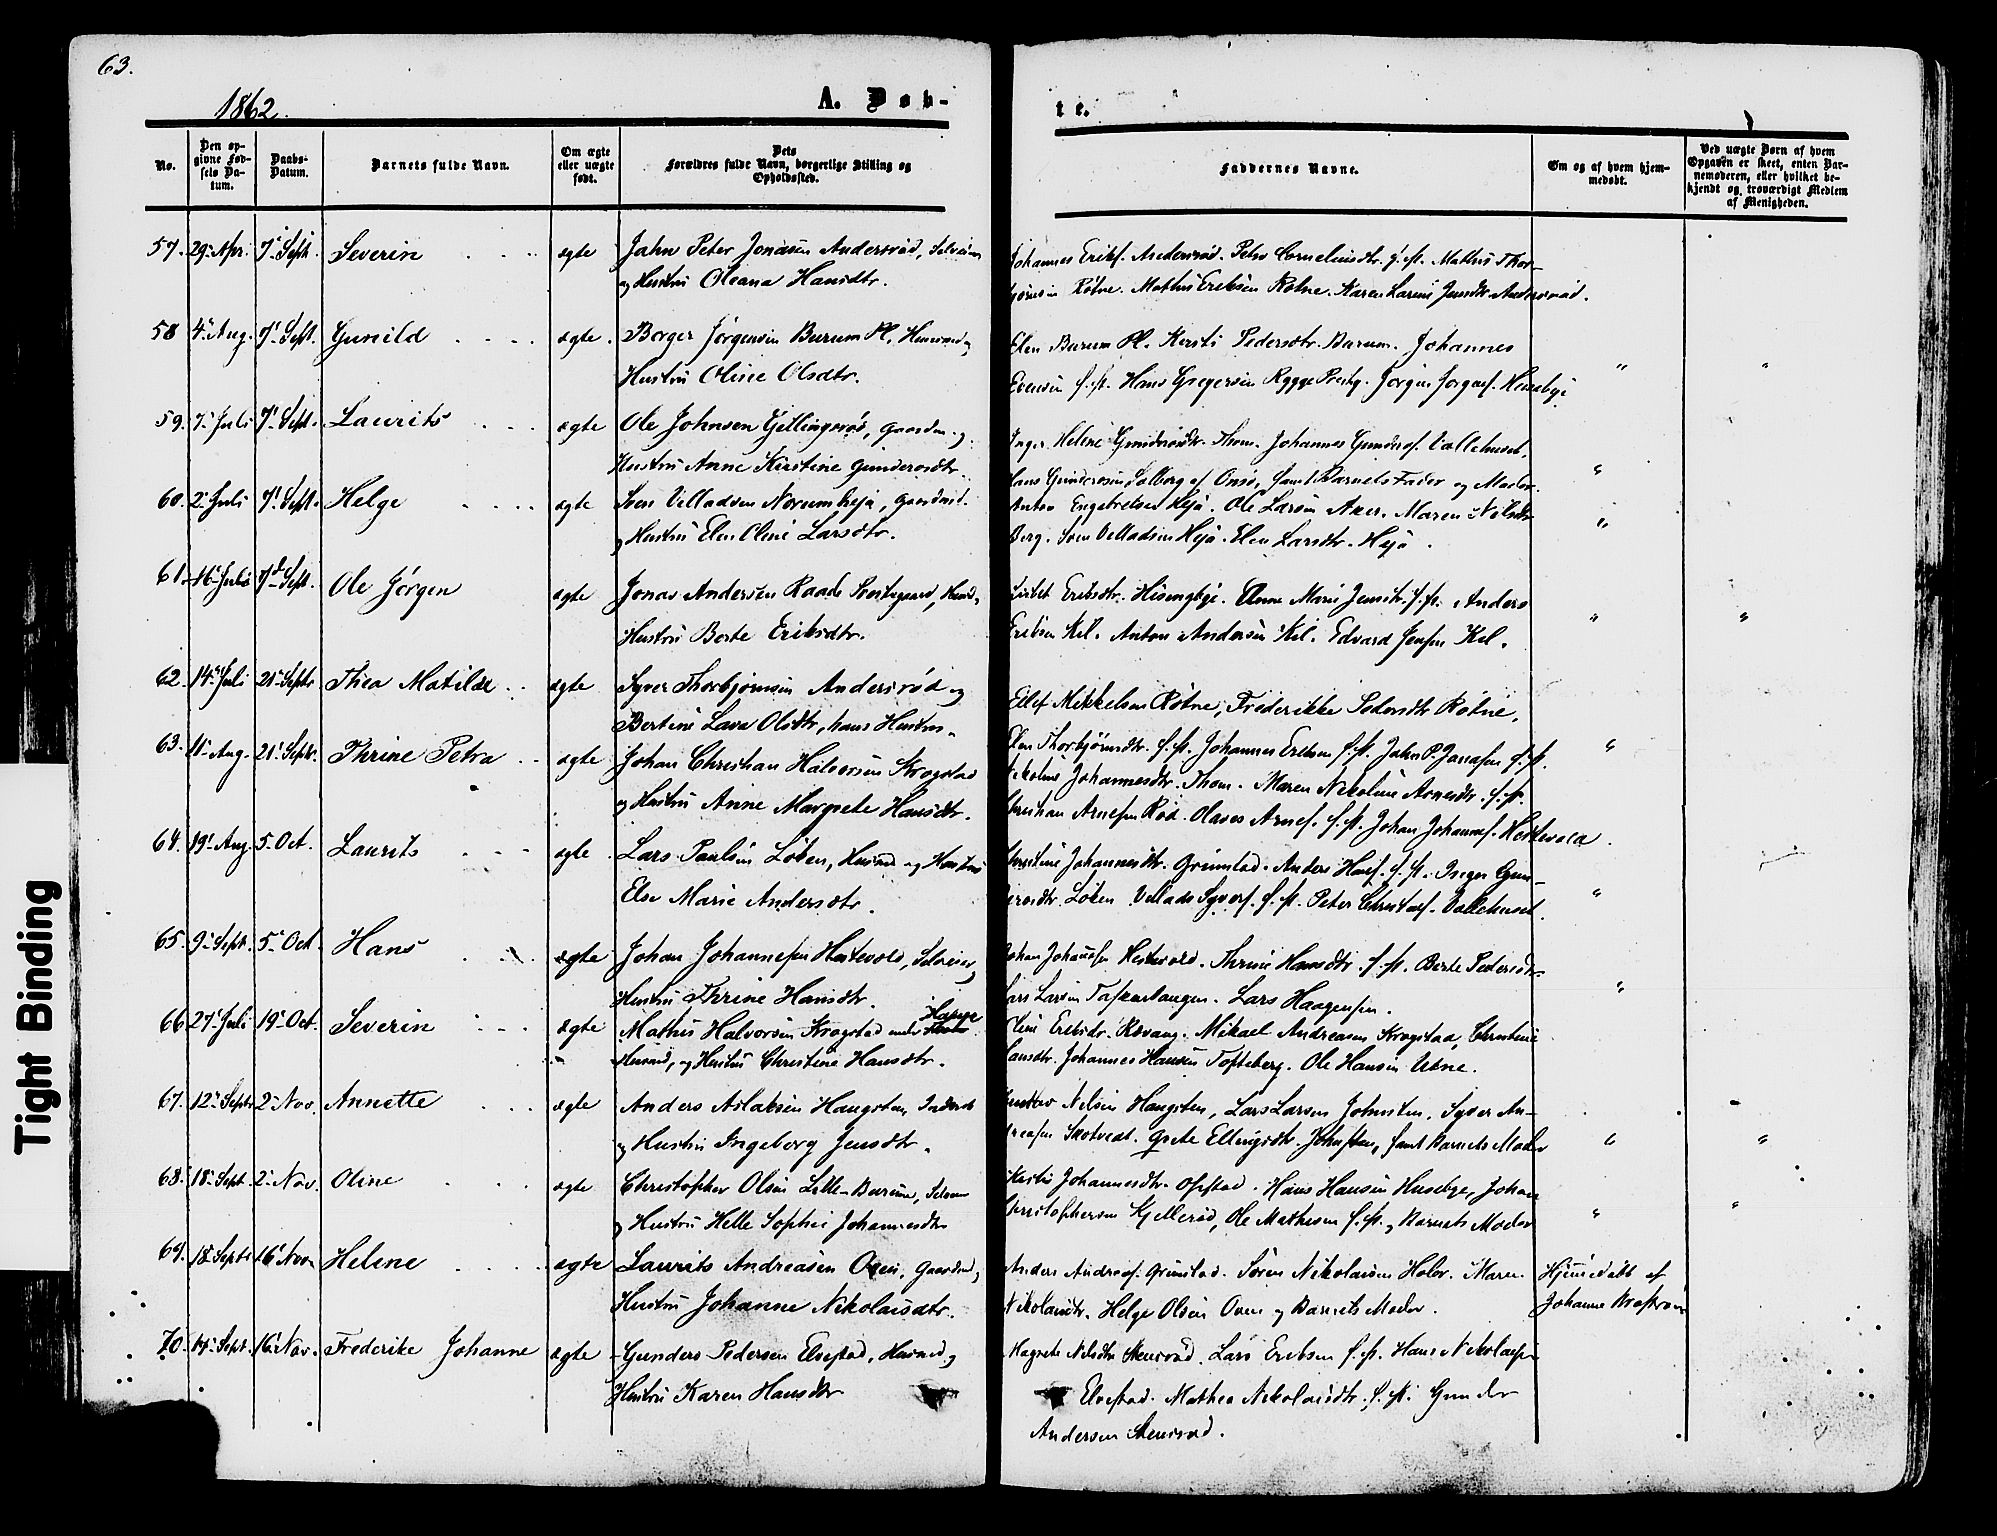 63.
1862.
A. Døb-
te.
No.
Den op-
givne Fød-
sels Da-
tum.
Daabs-
Datum.
Barnets fulde Navn.
Om ægte
eller uægte
født.
Dets
Forældres fulde Navn, borgerlige Stilling og
Opholdssted.
Faddernes Navne.
Om og af hvem hjem-
medøbt.
Ved uægte Børn af hvem
Opgaven er skeet, enten Bar-
nemoderen, eller hvilket be-
kjendt og troværdigt Medlem
af Menigheden.
57. 29. Apr. 7. Sept. Severin ægte Jahn Peter Jonasen Andersrød,
og Hustru Oleana Hansdtr.
Johannes Eriks. Andersrød. Petra Corneliusdtr. Mathis Thor-
Røtne. Mathis Eriksen Røtne. Karen Larine Jensdtr. Andersrød.
58 4. Aug. 7. Sept. Gunild ægte. Borger Jørgensen Burum Pl. Husmand og
Hustru Oline Olsdtr.
Elen Burum Pl. Kirsti Pedersdtr. Burum. Johannes
Evensen f. st. Hans Gregersen Rygge Præstg. Jørgen Jørgens.
59. 7. Juli 7. Sept. Laurits ægte Ole Johnsen Gillingsrød, Gaardm. og
Hustru Anne Kirstine Gundersdtr.
Inger Helene Gundersdtr. Thom. Johannes Gunders. Vallehuset.
Hans Gundersen Solberg af Onsø, samt Barnets Fader og Moder.
60. 2. Juli 7. Sept. Helge ægte Sven Velladsen Norumhejа, Gaardmd.
og Hustru Elen Oline Larsdtr.
Anton Engebretsen Heja. Ole Larsen Aker. Maren Nilsdtr.
Berg. Sven Velladsen Heja. Elen Larsdtr. Heja.
61. 16. Juli 7. Sept. Ole Jørgen ægte Jonas Andersen Raade Præstegaard, Husmd.
Hustru Berte Eriksdtr.
Lisbet Eriksdtr. Anne Marie Jensdtr. f. st. Anders
Eriksen Kil. Anton Andersen Kil. Edvard Jensen Kil.
62. 14. Juli 21. Septr. Thea Matilde ægte Syver Thorbjørnsen Andersrød og
Bertine Lava Olsdtr, hans Hustru.
Ellef Mikkelsen Røtne, Frederikke Pedersdtr Røtne,
63. 11. Aug. 21. Septr. Thrine Petra ægte Johan Christian Halvorsen Krogstad
og Hustru Anne Margrete Hansdtr.
Elen Thorbjørnsdtr. f. st. Johannes Eriksen f. st. Jahn P. Jonasen f. st.
Nikoline Johannesdtr. Thom. Maren Nikoline Arnesdtr. f. st.
Christian Arnesen Rød. Olaves Arnes. f. st. Johan Johannes. Hestevold.
64. 19. Aug. 5. Oct. Laurits ægte. Lars Paulsen Løken, Husmd og Hustru
Else Marie Andersdtr.
Christine Johannesdtr. Grimstad. Anders Hans. f. st. Inger Gun-
dersdtr. Løken Vellads Syvers. f. st. Peter Christens. Vallehuset.
65. 9. Sept. 5. Oct. Hans ægte Johan Johannesen Hestevold, Selveier,
Hustru Thrine Hansdtr.
Johan Johansen Hestevold. Thrine Hansdtr. f. st. Berte Pedersdtr.
Lars Larsen Lars Haagensen.
66 27. Juli 19. Oct. Severin ægte Mathis Halvorsen Krogstad under
Husmd, og Hustru Christine Hansdtr.
Eline Eriksdtr. Mikael Andreasen Krogstad, Christine
Hansdtr. Johannes Hansen Tofteberg. Ole Hansen Utne.
67. 12. Septr 2. Nov. Annette ægte Anders Aslaksen Haugsten, Inderst
og Hustru Ingeborg Jensdtr.
Gustav Nilsen Haugsten, Lars Larsen Johnsten, Syver An-
dreasen Skotvedt. Grete Ellingsdtr. Johnsten, samt Barnets Moder
68. 18. Sept. 2. Nov. Oline ægte Christopher Olsen Lille-Burum,
og Hustru Helle Sophie Johannesdtr
Kirsti Johannesdtr. Opstad. Hans Hansen Husebye, Johan
Christophersen Kjellerød, Ole Mathisen f. st. og Barnets Moder
69. 18 Septr 16. Nov. Helene ægte Laurits Andreasen Oven, Gaardmd, og
Hustru Johanne Nikolaisdtr.
Anders Andreas. Grimstad. Søren Nikolaisen Holer. Maren
Nikolaisdtr. Helge Olsen Oven og Barnets Moder.
Hjemmedøbt af
Johanne
70. 14. Sept. 16. Nov. Frederike Johanne ægte Gunders Pedersen Elvestad, Husmd. og
Hustru Karen Hansdtr
Magrete Nilsdtr Stensrød. Lars Eriksen f. st. Hans Nikolaisen
Elvestad. Mathea Nikolaisdtr. f. st. Gunder
Andersen Stensrød.
Tight Binding